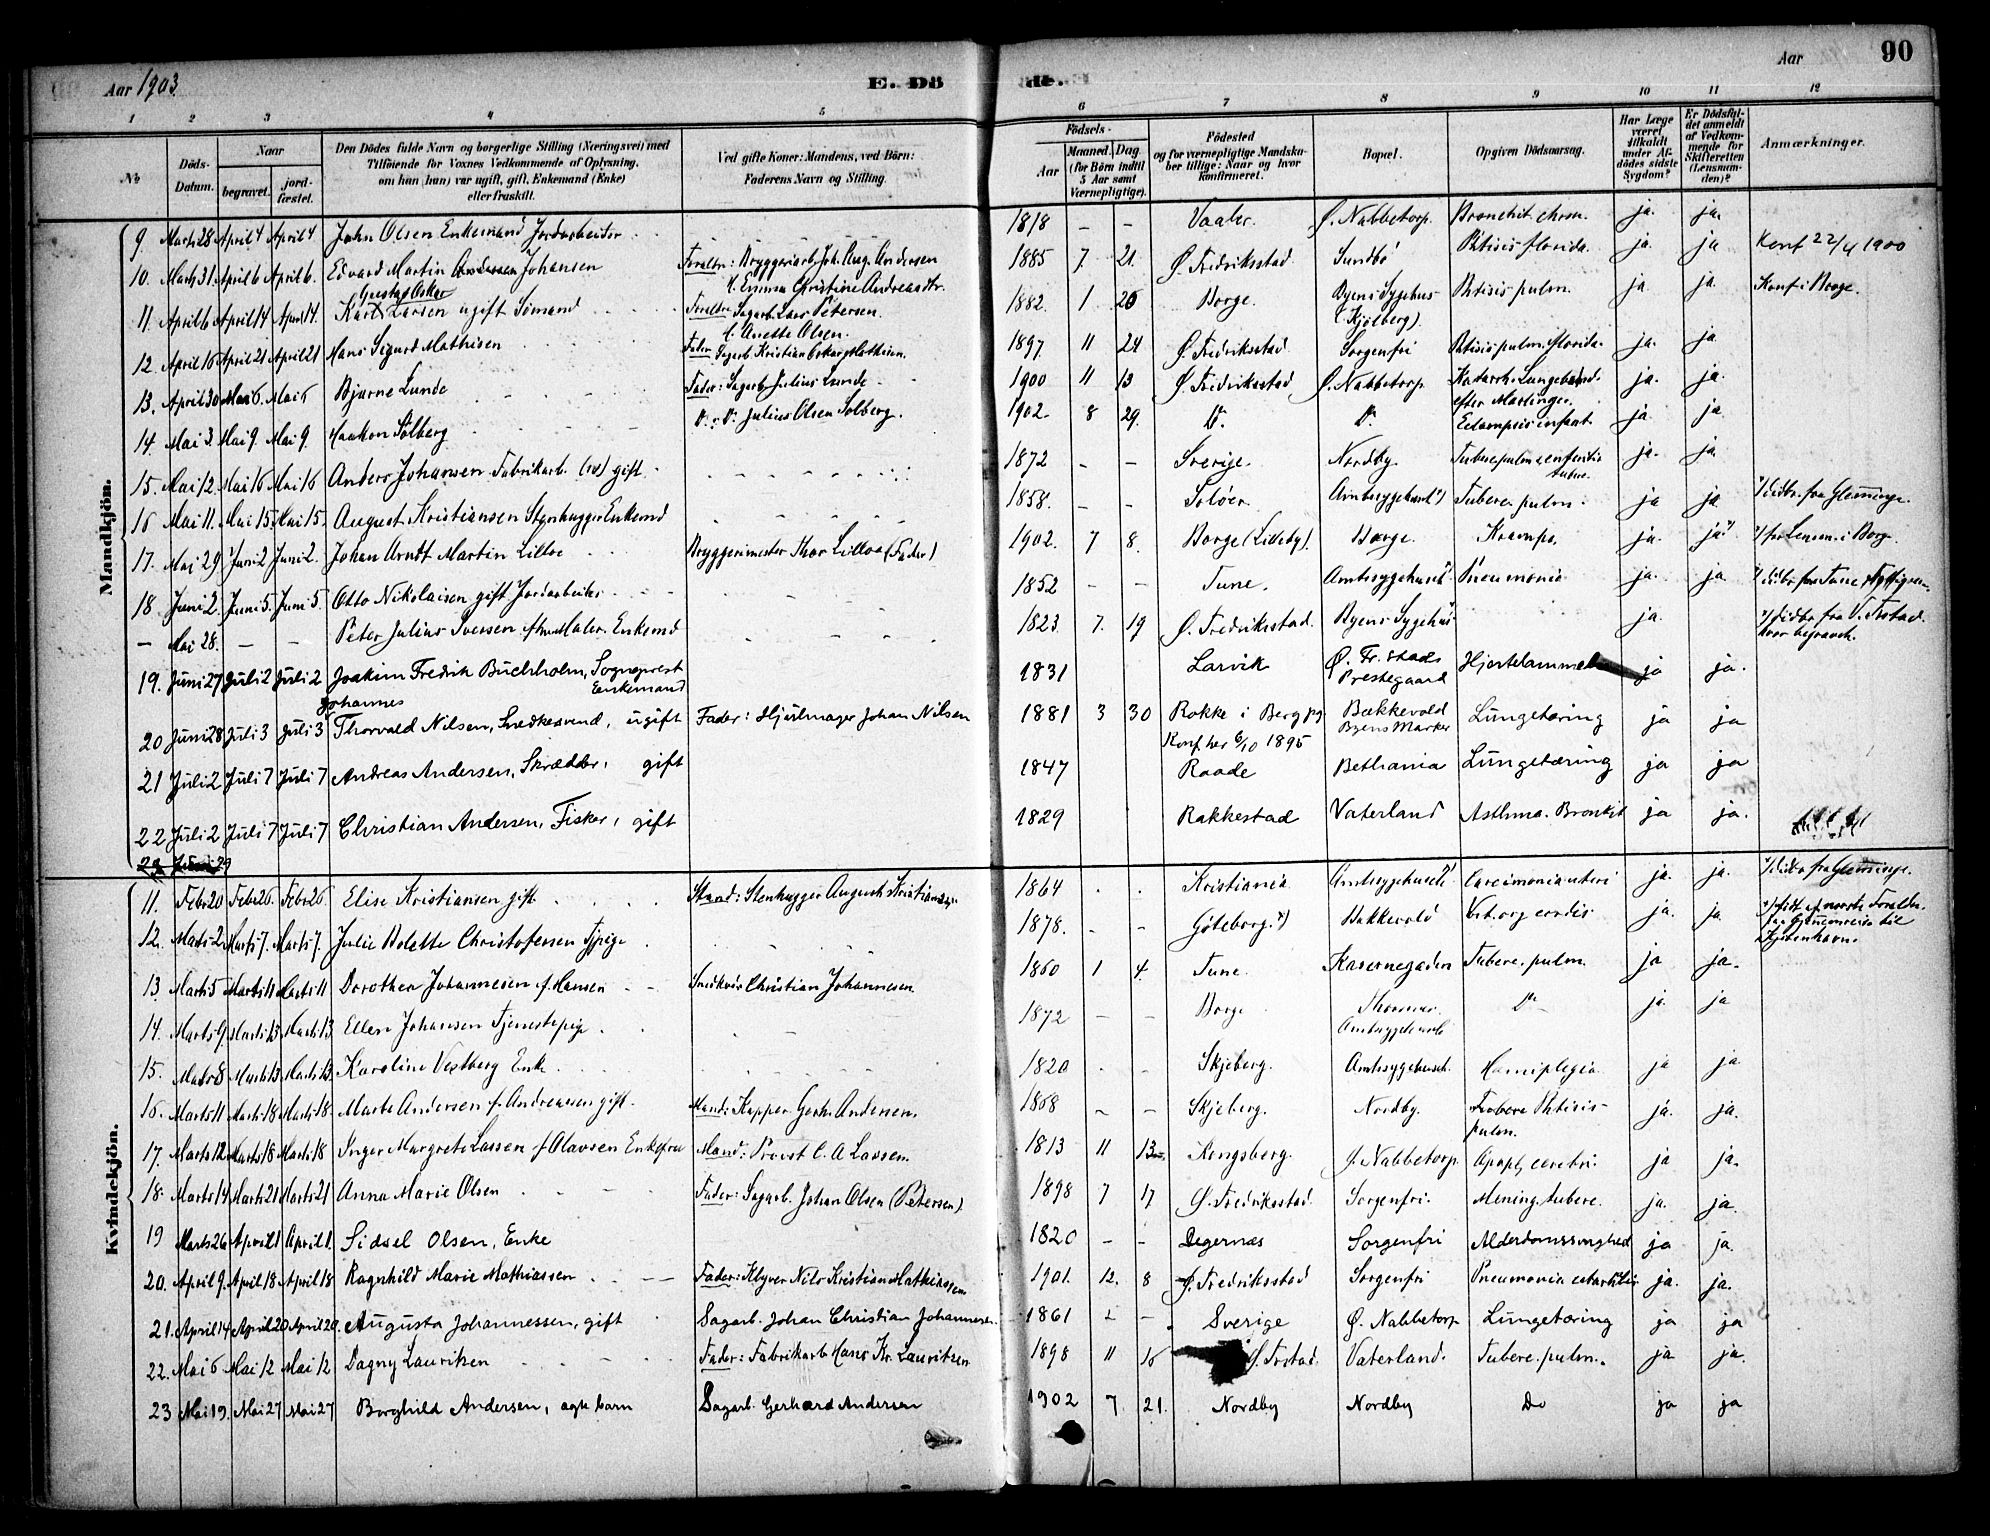 Aar 1903.
E. Dö
de.
Aar
90
1 2 3 4 5 6 7 8 9 10 11 12
№
Döds-Datum.
Naar
begravet.
jord-fæstet.
Den Dödes fulde Navn og borgerlige Stilling (Næringsvei) med
Tilföiende for Voxnes Vedkommende af Oplysning,
om han (hun) var ugift, gift, Enkemand (Enke)
eller fraskilt.
Ved gifte Koner: Mandens, ved Börn:
Faderens Navn og Stilling.
Födsels-
Aar
Maaned. Dag.
(for Börn indtil 5 Aar samt Værnepligtige).
Födested
og for værnepligtige Mandska-
ber tillige: Naar og hvor
konfirmeret.
Bopæl.
Opgiven Dödsaarsag.
Har Læge været tilkaldt under Af-dödes sidste Sygdom?
Er Dödsfal-det anmeldt af Vedkom-mende for Skifteretten (Lensman-den)?
Anmærkninger.
Mandkjön.
9. Marts 28 April 4 April 4 John Olsen Enkemand Jordarbeider 1818 – – Vaaler. Ø. Nabbetorp. Bronchit. chron. ja. ja.
10. Marts 31 April 6 April 6. Edvard Martin Johansen Forældre: Bryggeriarb. Joh. Aug. Andersen 1885 7. 21. Ø. Fredriksstad Sundbö Phtisis florida. ja ja Konf 22/4 1900
& Emma Christine Andreasdtr.
Gustav Oskar
11. April 6 April 14 April 14. Karl Larsen ugift Sömand Forældre Sagarb. Lars Petersen. 1882. 1 26 Borge. Byens Sygehus Phtisis pulm. ja ja Konf i Borge.
& Anette Olsen. (Kjölberg).
12. April 16 April 21 April 21 Hans Sigurd Mathisen Fader Sagarb Kristian Oskar Mathisen. 1897. 11 24 Ø. Fredriksstad Sorgenfri Phtisis pulm. florida. ja. ja
13. April 30 Mai 6. Mai 6 Bjarne Lunde Fader: Sagarb Julius Lunde 1900 11 13 Ø. Fredriksstad Ø. Nabbetorp Katarrh. Lungebetænd. ja. ja.
efter Mæslinger.
14. Mai 3. Mai 9. Mai 9. Haakon Solberg Do: Do: Julius Olsen Solberg. 1902. 8 29. Do. Do. Eclampsis infant. ja ja
15. Mai 12. Mai 16 Mai 16 Anders Johansen Fabrikarb. gift. 1872 – – Sverige. Nordby. Tuberc. pulm. ja. ja
16 Mai 11. Mai 15. Mai 15. August Kristiansen Stenhugger Enkemd 1858. – – Solöer. Amtssygehuset Tuberc. pulm. ja ja Indbr. fra Glemminge.
17. Mai 29 Juni 2 Juni 2. Johan Arndt Martin Lilloe Bryggerimester Thor Lilloe (Fader) 1902. 7 8. Borge (Lisleby). Borge. Krampe. ja. ja. for Lensm. i Borge.
18. Juni 2. Juni 5. Juni 5. Otto Nikolaisen gift Jordarbeider 1852 – – Tune. Amtssygehuset Pneumonia ja. ja Indbr fra Tune
– Mai 28. – – Peter Julius Iversen fhv. Maler. Enkemd 1823. 7. 19 Ø. Fredriksstad. Byens Sygehus ja. Indbr. fra V. Frstad.
hvor begravet.
19. Juni 27 Juli 2 Juli 2 Joakim Fredrik Buchholm, Sogneprest 1831 Larvik Ø. Fr.stads Hjertelammelse ja ja.
Enkemand Prestegaard
Johannes
20 Juni 28 Juli 3 Juli 3 Thorvald Nilsen, Snedkersvend, ugift Fader: Hjulmager Johan Nilsen 1881 3 30 Rokke i Berg pg Bækkevold Lungetæring ja ja
Konf. her 6/10 1895 Byens Marker
21 Juli 2 Juli 7 Juli 7 Andreas Andersen, Skrædder, gift 1847 Raade Bethania Lungetæring ja ja
22 Juli 2 Juli 7 Juli 7 Christian Andersen, Fisker, gift 1829 Rakkestad Vaterland Asthma. Bronkit ja ja.
Kvindekjön.
11. Febr 20 Febr 26. Febr 26. Elise Kristiansen gift Mand: Stenhugger August Kristiansen 1864 Kristiania Amtssygehuset Carcinoma uteri ja. ja. Indbr fra Glemminge.
12. Marts 2 Marts 7. Marts 7. Julie Bolette Christofersen Tjpige 1878. – – Göteborg. Bakkevold Vit. org. cordis ja. ja.
Kjöbenhavn.
13 Marts 5 Marts 11 Marts 11 Dorothea Johannesen f. Hansen Snedker Christian Johannesen 1860 1 4. Tune. Kasernegaden Tuberc. pulm. ja ja.
14. Marts 9. Marts 13 Marts 13 Ellen Johansen Tjenestepige 1872 – – Borge Do ja. ja
Amtssygehuset
15. Marts 8 Marts 13 Marts 13. Karoline Vestberg Enke 1820 Skjeberg. Amtssygehuset. Hemiplegia ja ja
16. Marts 11 Marts 18 Marts 18. Marte Andersen f. Andreassen gift. Mand: Kapper Gerh. Andersen. 1868 – – Skjeberg. Nordby. Phtisis ja. ja.
pulm.
17. Marts 12 Marts 18 Marts 18 Inger Margrete Lassen f. Olavsen Enkefru Mand: Provst C. A Lassen. 1813 11 13 Kongsberg. Ø. Nabbetorp. Apopl. cerebri. ja ja.
18. Marts 14 Marts 21 Marts 21 Anna Marie Olsen Fader: Sagarb. Johan Olsen (Petersen). 1898 7 17 Ø. Fredriksstad. Sorgenfri. Mening. tuberc. ja. ja.
19 Marts 26 April 1 April 1. Sidsel Olsen, Enke 1820 – – Degernæs Sorgenfri Alderdomssvaghed ja ja.
20. April 9. April 18 April 18 Ragnhild Marie Mathiassen Fader: Klyver Nils Kristian Mathiassen 1901. 12. 8 Ø. Fredriksstad Sorgenfri Pneumonia catarrhalis ja. ja.
21. April 14 April 20 April 20. Augusta Johannessen, gift Sagarb. Johan Christian Johannesen. 1861 – – Sverige Ø. Nabbetorp Lungetæring ja ja
22. Mai 6 Mai 12 Mai 12 Dagny Lauritzen Fader: Fabrikarb Hans Kr. Lauritzen 1898 11 16 Ø. Frstad. Vaterland. Tuberc. pulm. ja ja.
23 Mai 19. Mai 27 Mai 27 Borghild Andersen, ægte barn Sagarb. Gerhard Andersen 1902 7. 21. Nordby Nordby Do ja ja